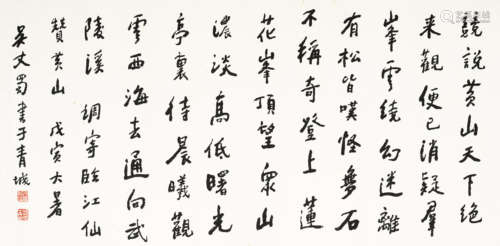 競說黃山天下绝
来觀便已消疑羣
峯雲繞幻迷離
有松皆嘆怪無石
不稱奇登上蓮
花峯頂望衆山
濃淡高低曙光
亭裏待晨曦觀
雲西海去通向武
陵溪 調寄臨江仙
贊黃山 戊寅大暑
吴丈蜀書于青城